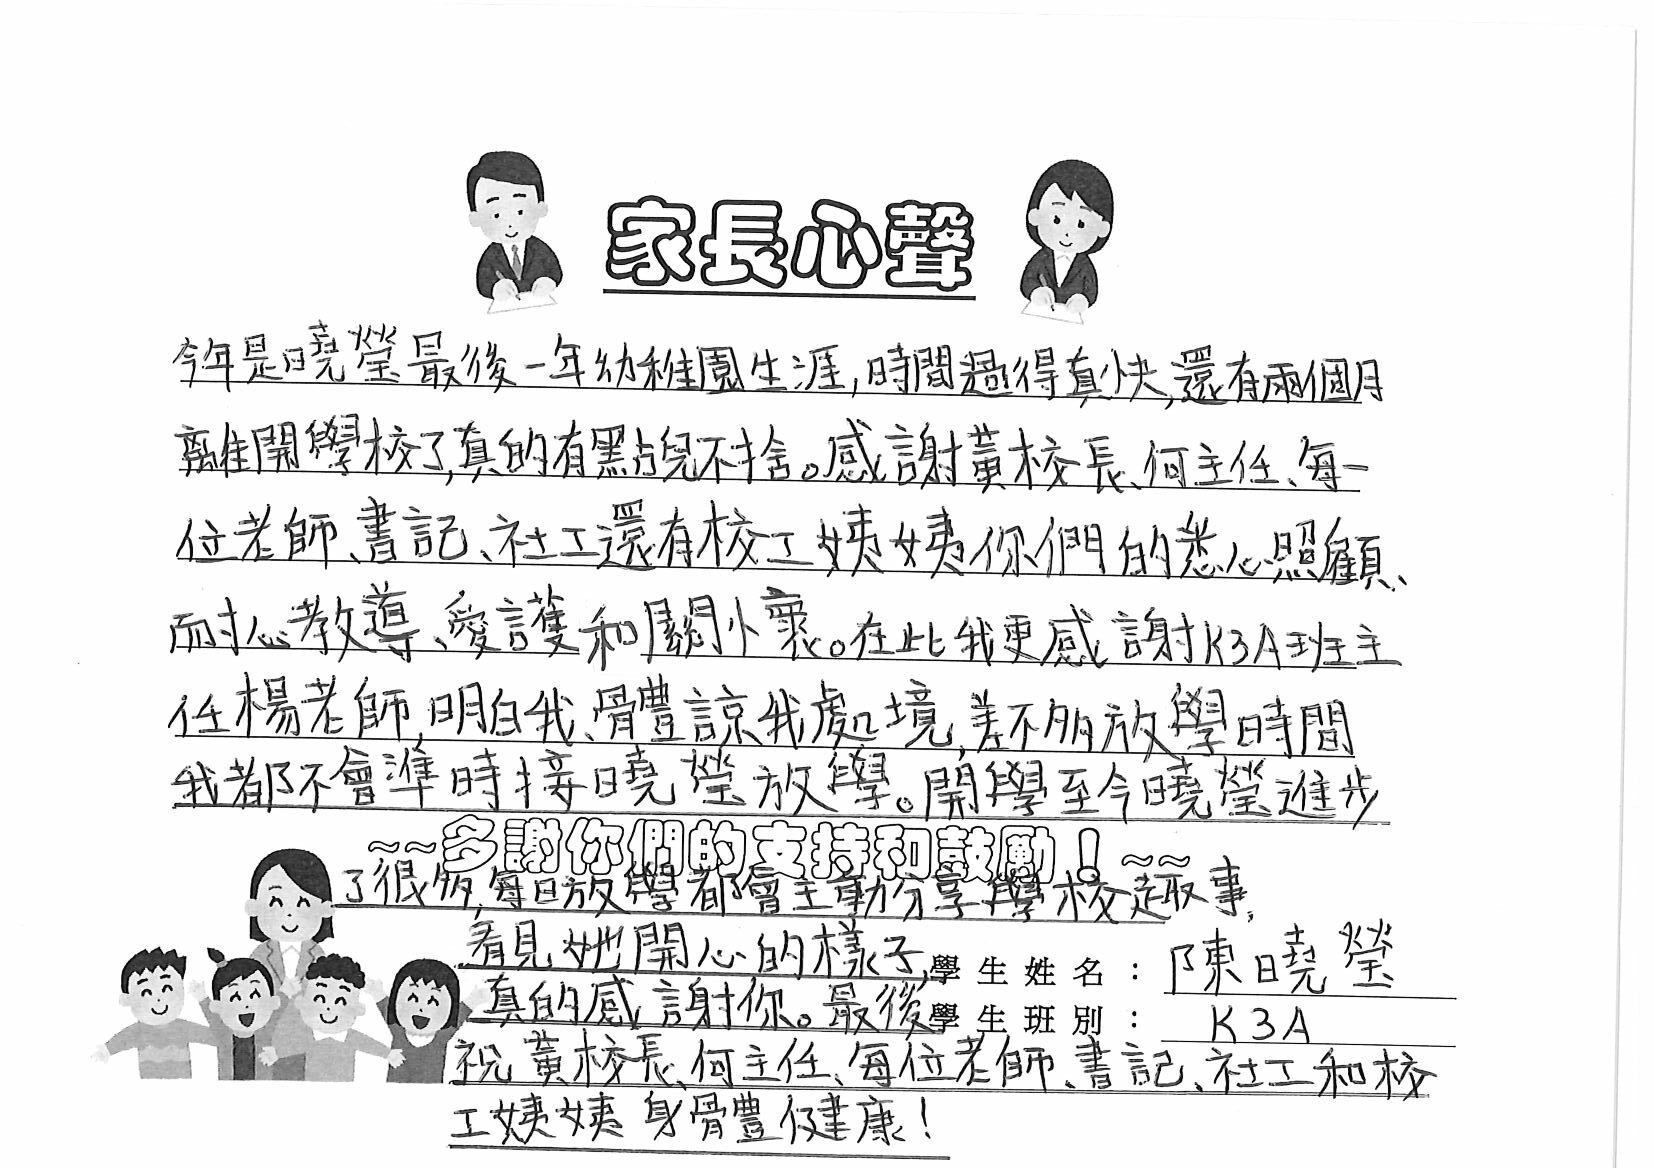 家長心聲
今年是曉瑩最後一年幼稚園生涯,時間過得真快,還有兩個月
離開學校了,真的有點兒不捨。感謝黃校長、何主任、每一
位老師、書記、社工還有校工姨姨你們的悉心照顧、
耐心教導、愛護和關懷。在此我更感謝K3A班主
任楊老師,明白我、體諒我處境,差不多放學時間
我都不會準時接曉瑩放學。開學至今曉瑩進步
~~多謝你們的支持和鼓勵!~~
了很多,每日放學都會主動分享學校趣事,
看見她開心的樣子,
學生姓名:陳曉瑩
真的感謝你。最後
學生班別:K3A
祝黃校長、何主任、每位老師、書記、社工和校
工姨姨身體健康!